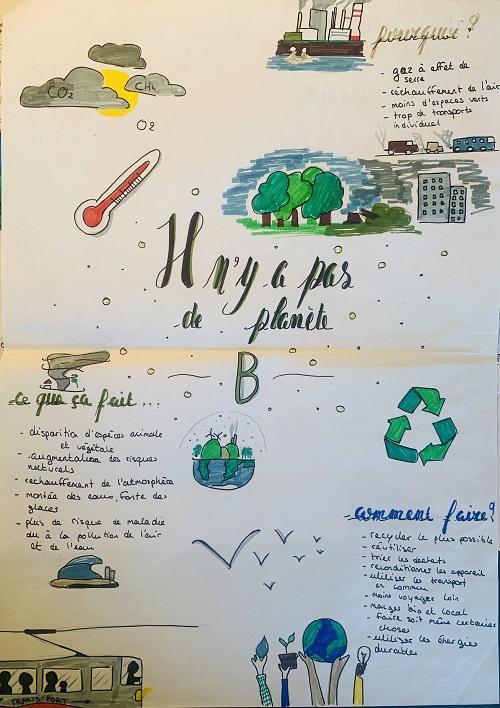 pourquoi ?
- gaz à effet de
serre
- réchauffement de l'air
- moins d'espaces verts
- trop de transports
individuel
CO2
CH4
O2
Il n'y a pas
de planète
B
ce que ça fait...
- disparition d'espèces animale
et végétale
- augmentation des risques
naturels
- rechauffement de l'atmosphère
- montée des eaux, fonte des
glaces
- plus de risque de maladie
du à la pollution de l'air
et de l'eau
comment faire ?
- recycler le plus possible
- réutiliser
- trier les déchets
- reconditionner les appareil
- utiliser les transport
en commun
- moins voyager loin
- manger bio et local
- faire soit même certaines
choses
- utiliser les énergies
durables
TRANSPORT